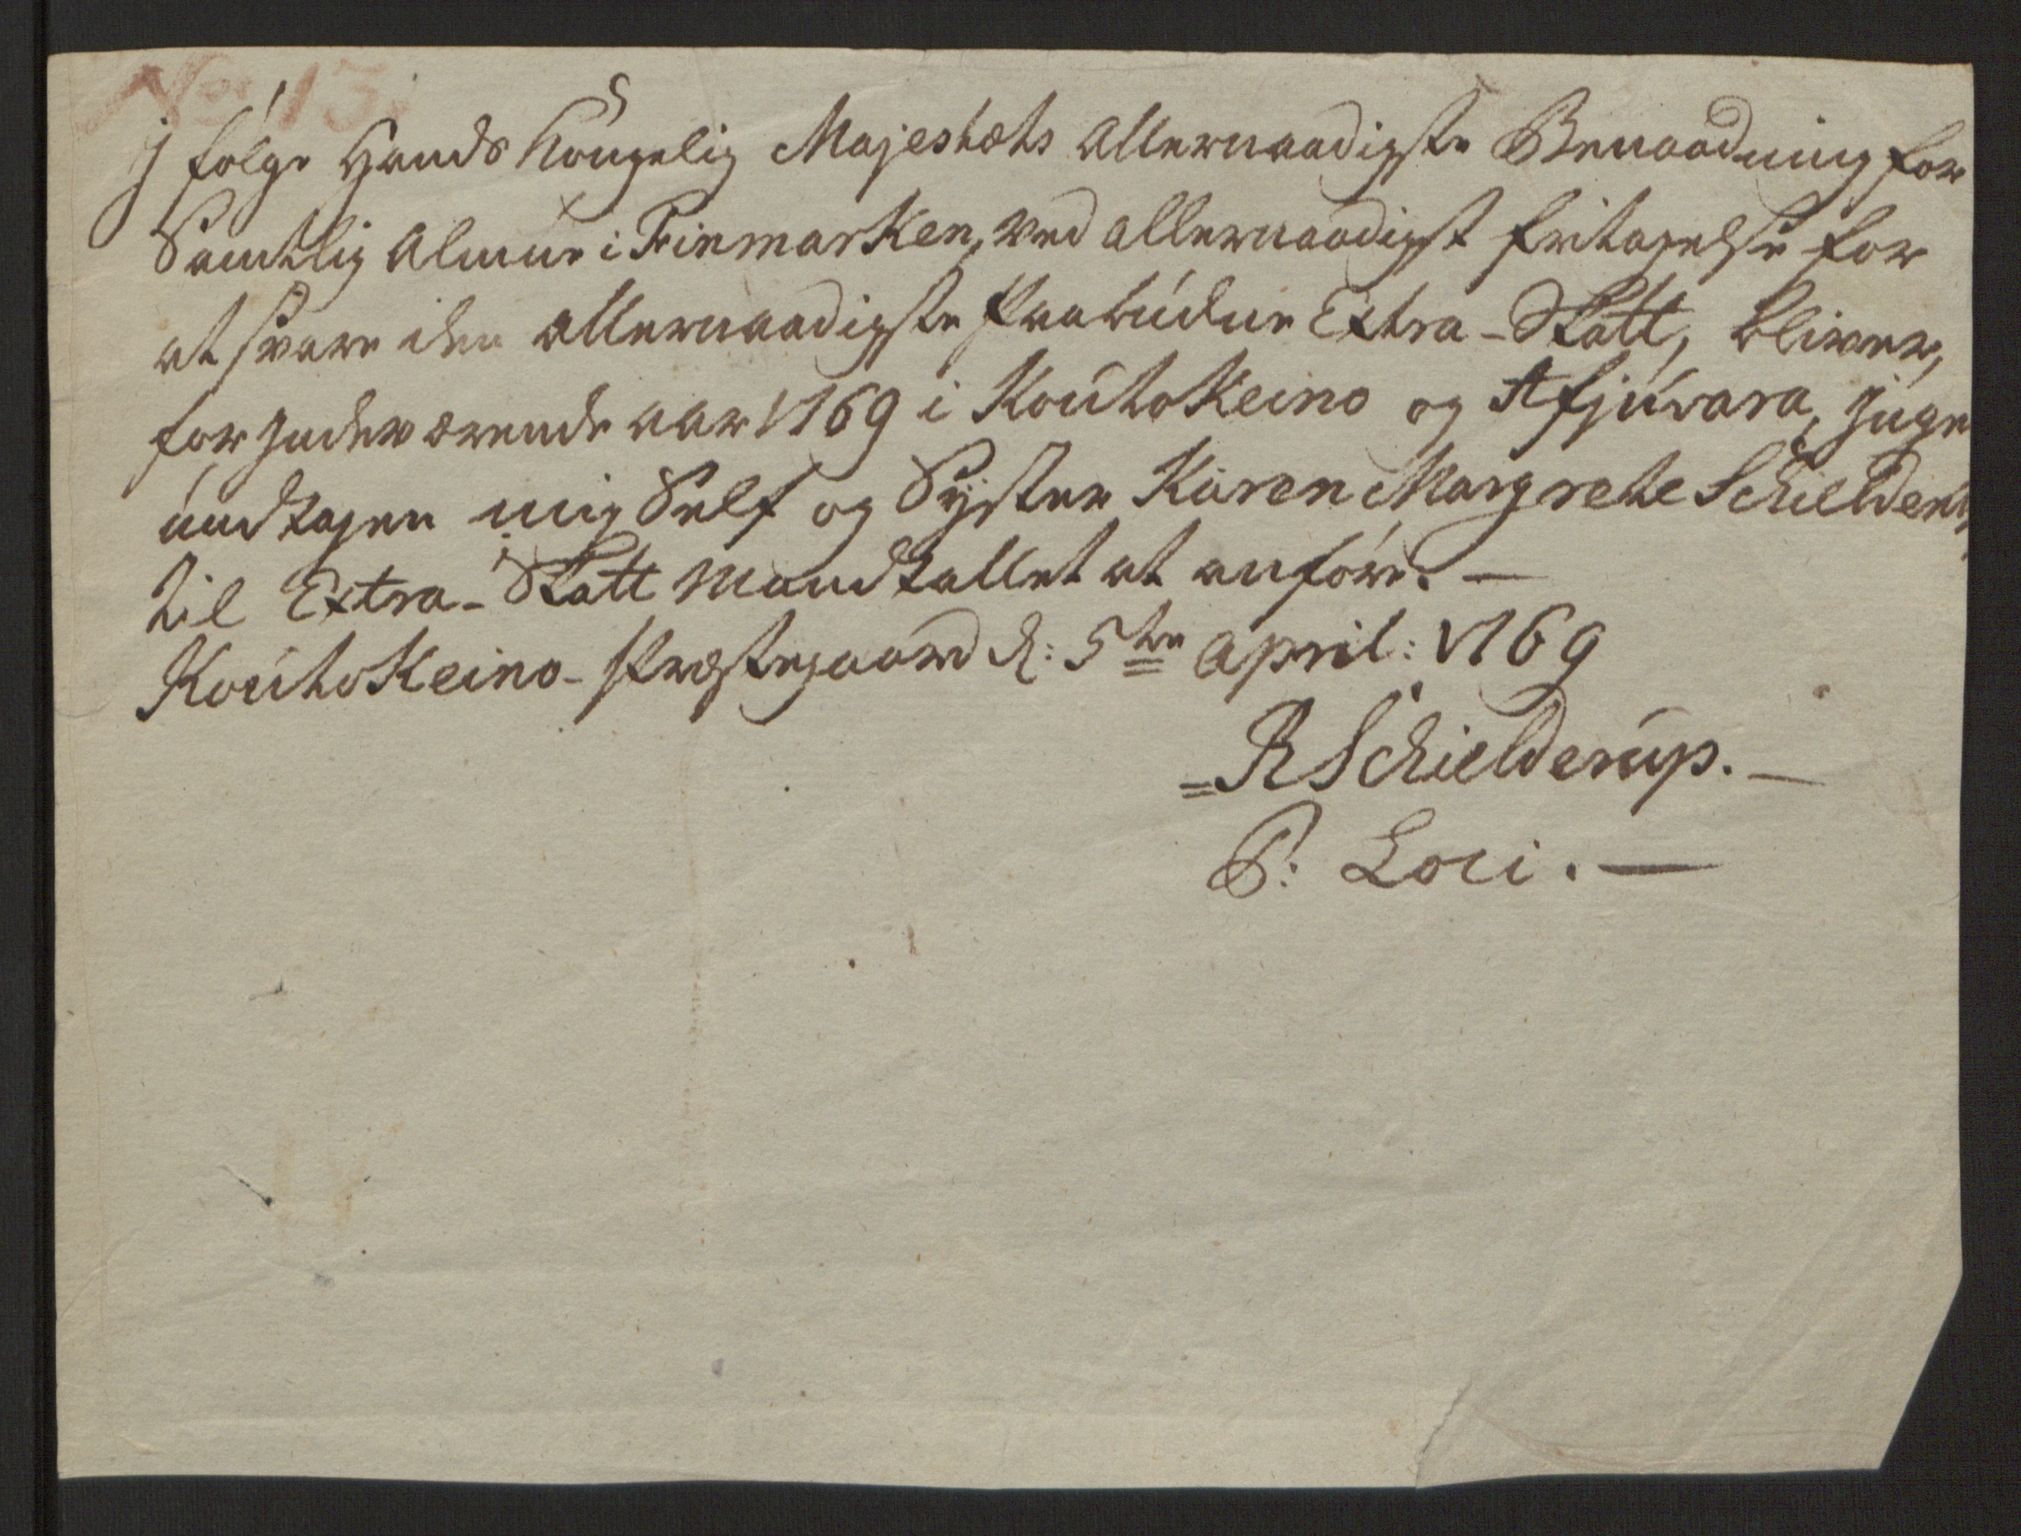 No: 13.
J følge Hands Kongelig Majestæts Allernaadigste Benaadning for
Samtlig Almue i Finmarken, ved allernaadigst fritagelse for
at svare den allernaadigste paabudne Extra-Skatt, bliver,
for Indeværende aar 1769 i KoutoKeino og Afjuvara, Jngen
undtagen mig Self og Syster Karen Margrethe Schielderup,
til Extra-Skatt Mandtallet at anføre. —
KoutoKeino-Præstegaard d: 5te April: 1769
RSchielderup. —
P: Loci. —